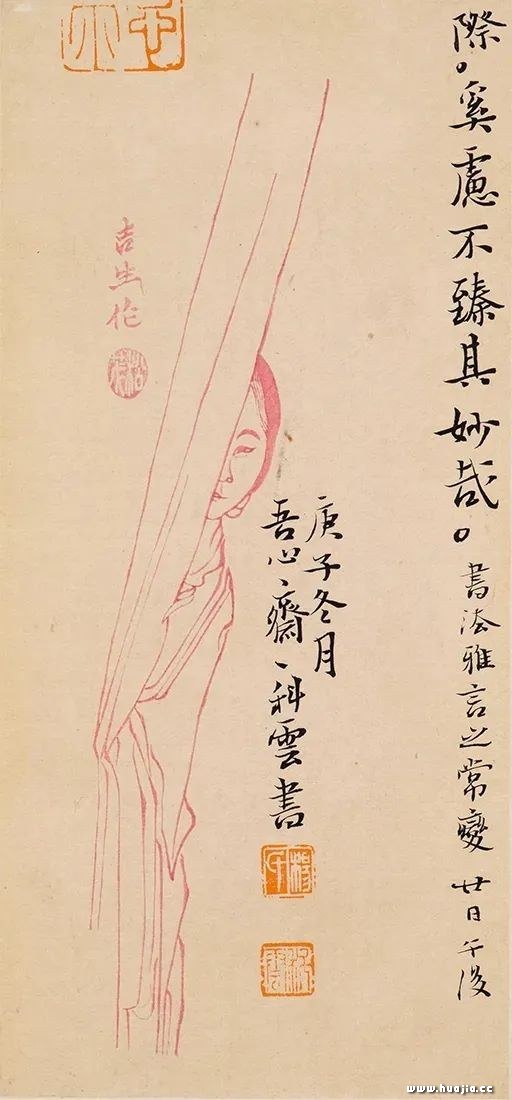 際。奚慮不臻其妙哉。書法雅言之常變 廿日午後
庚子冬月
吾心齋科雲書
吉生作
www.huajia.cc